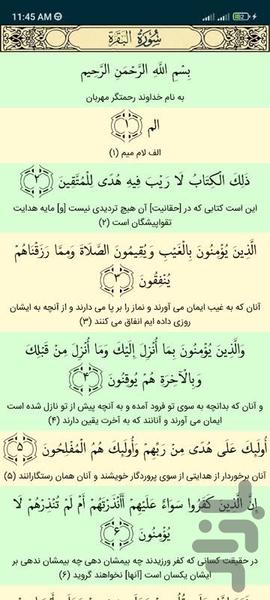 11:45 AM
سُورَةُ البَقَرَةِ
بِسْمِ اللَّهِ الرَّحْمَنِ الرَّحِيمِ
به نام خداوند رحمتگر مهربان
الم ﴿١﴾
الف لام میم (۱)
ذَلِكَ الْكِتَابُ لَا رَيْبَ فِيهِ هُدًى لِلْمُتَّقِينَ ﴿٢﴾
این است کتابی که در [حقانیت] آن هیچ تردیدی نیست [و] مایه هدایت
تقواپیشگان است (۲)
الَّذِينَ يُؤْمِنُونَ بِالْغَيْبِ وَيُقِيمُونَ الصَّلَاةَ وَمِمَّا رَزَقْنَاهُمْ
يُنْفِقُونَ ﴿٣﴾
آنان که به غیب ایمان می آورند و نماز را بر پا می دارند و از آنچه به ایشان
روزی داده ایم انفاق می کنند (۳)
وَالَّذِينَ يُؤْمِنُونَ بِمَا أُنْزِلَ إِلَيْكَ وَمَا أُنْزِلَ مِنْ قَبْلِكَ
وَبِالْآخِرَةِ هُمْ يُوقِنُونَ ﴿۴﴾
و آنان که بدانچه به سوی تو فرود آمده و به آنچه پیش از تو نازل شده است
ایمان می آورند و آنانند که به آخرت یقین دارند (۴)
أُولَئِكَ عَلَى هُدًى مِنْ رَبِّهِمْ وَأُولَئِكَ هُمُ الْمُفْلِحُونَ ﴿۵﴾
آنان برخوردار از هدایتی از سوی پروردگار خویشند و آنان همان رستگارانند (۵)
إِنَّ الَّذِينَ كَفَرُوا سَوَاءٌ عَلَيْهِمْ أَأَنْذَرْتَهُمْ أَمْ لَمْ تُنْذِرْهُمْ لَا
يُؤْمِنُونَ ﴿۶﴾
در حقیقت کسانی که کفر ورزیدند چه بیمشان دهی چه بیمشان ندهی بر
ایشان یکسان است [آنها] نخواهند گروید (۶)